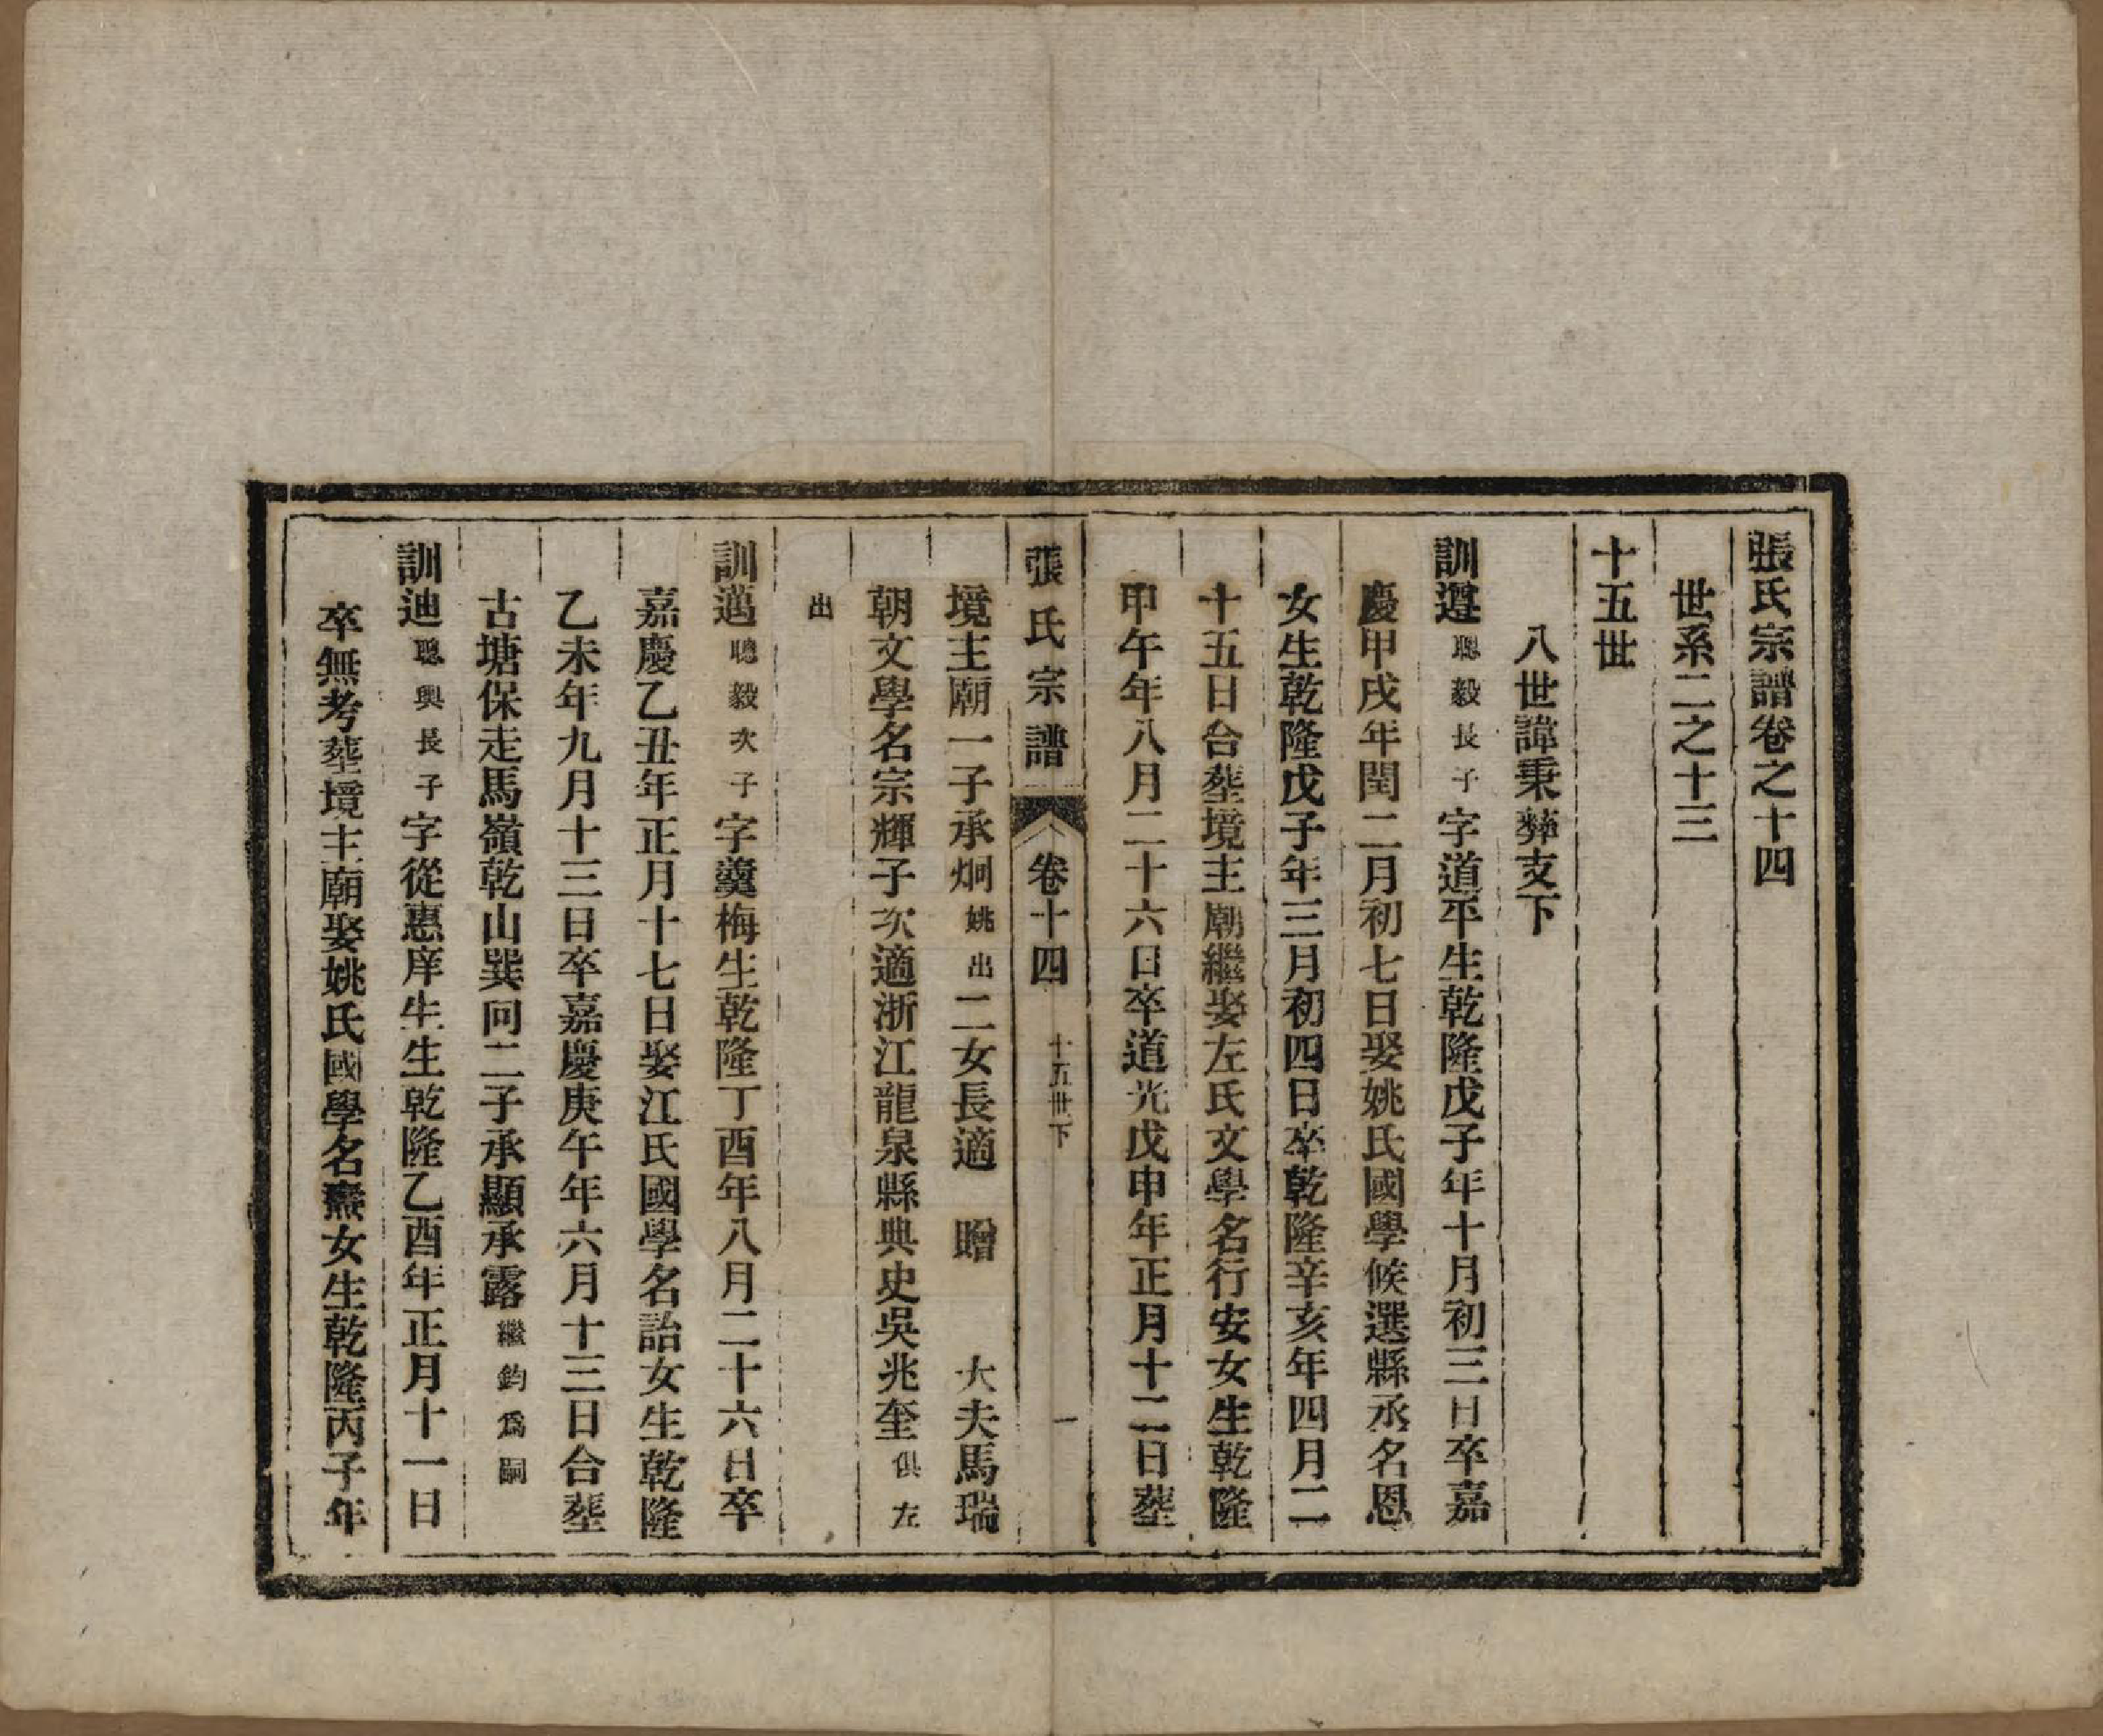 張氏宗譜卷之十四
世系二之十三
十五世
八世諱秉彝支下
訓遵聰毅長子字道平生乾隆戊子年十月初三日卒嘉
慶甲戌年閏二月初七日娶姚氏國學候選縣丞名恩
女生乾隆戊子年三月初四日卒乾隆辛亥年四月二
十五日合葬境主廟繼娶左氏文學名行安女生乾隆
甲午年八月二十六日卒道光戊申年正月十二日葬
張氏宗譜 卷十四 十五世下 一
境主廟一子承炯姚出二女長適 贈 大夫馬瑞
朝文學名宗輝子次適浙江龍泉縣典史吳兆奎俱左
出
訓邁聰毅次子字羹梅生乾隆丁酉年八月二十六日卒
嘉慶乙丑年正月十七日娶江氏國學名詒女生乾隆
乙未年九月十三日卒嘉慶庚午年六月十三日合葬
古塘保走馬嶺乾山巽向二子承顯承露繼鈞爲嗣
訓迪聰興長子字從惠庠生生乾隆乙酉年正月十一日
卒無考葬境主廟娶姚氏國學名燾女生乾隆丙子年